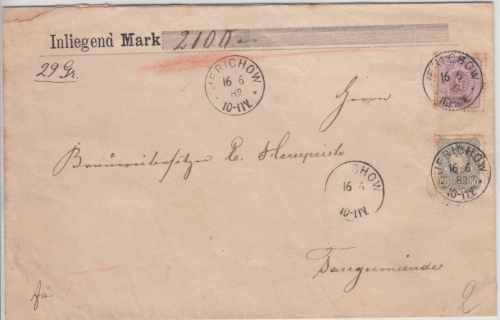 Inliegend Mark 2100.-
29 Gr.
JERICHOW
16 6
82
10-11V.
JERICHOW
16 6
82
10-11V.
Herrn
Brauereibesitzer C.
JERICHOW
16 6
82
10-11V.
CHOW
16 6
10-11V.
Tangermünde